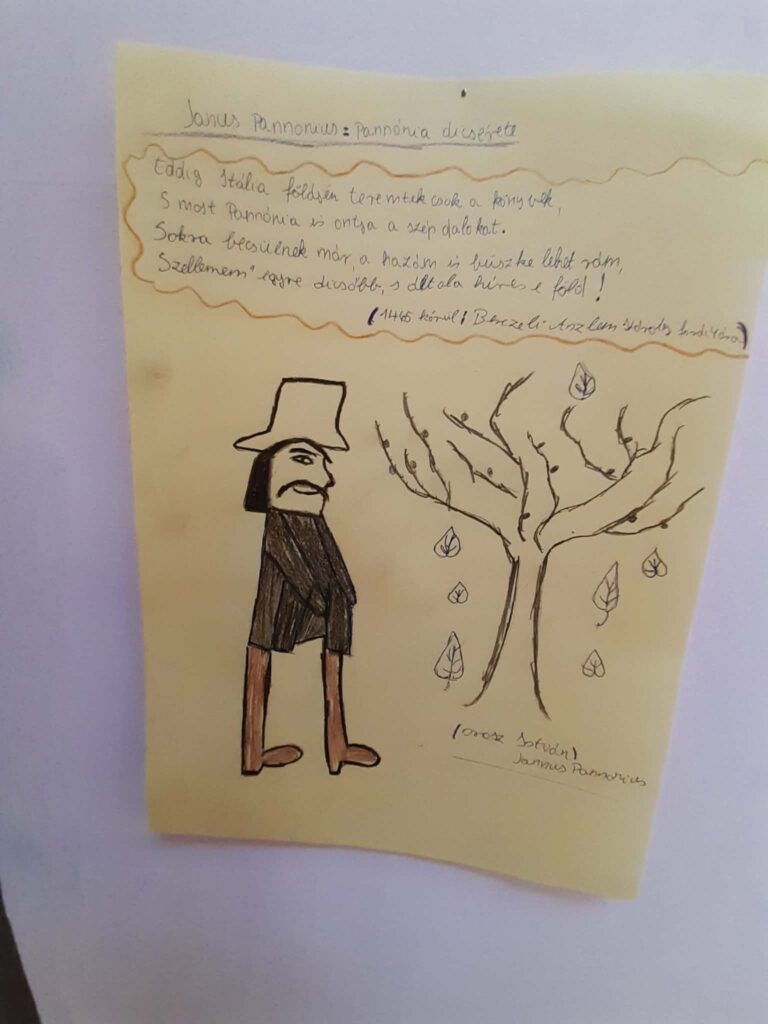 Janus Pannonius: Pannónia dicsérete
Eddig Itália földjén teremtek csak a könyvek,
S most Pannónia is ontja a szép dalokat.
Sokra becsülnek már, a hazám is büszke lehet rám,
Szellemem" egyre dicsőbb, s általa híres e föld!
(1465 körül) Berczeli Anzlem
(Orosz István)
Jannus Pannonius